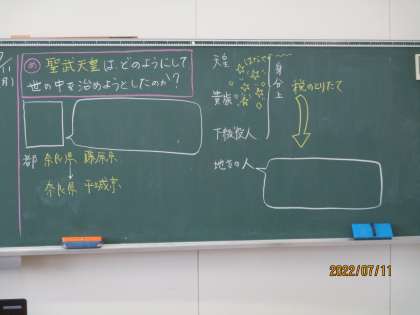 7/11
(月)
め 聖武天皇は、どのようにして
世の中を治めようとしたのか？
都 奈良県 藤原京
↓
奈良県 平城京
天皇
貴族
下級役人
地方の人
身分上
税のとりたて
2022/07/11